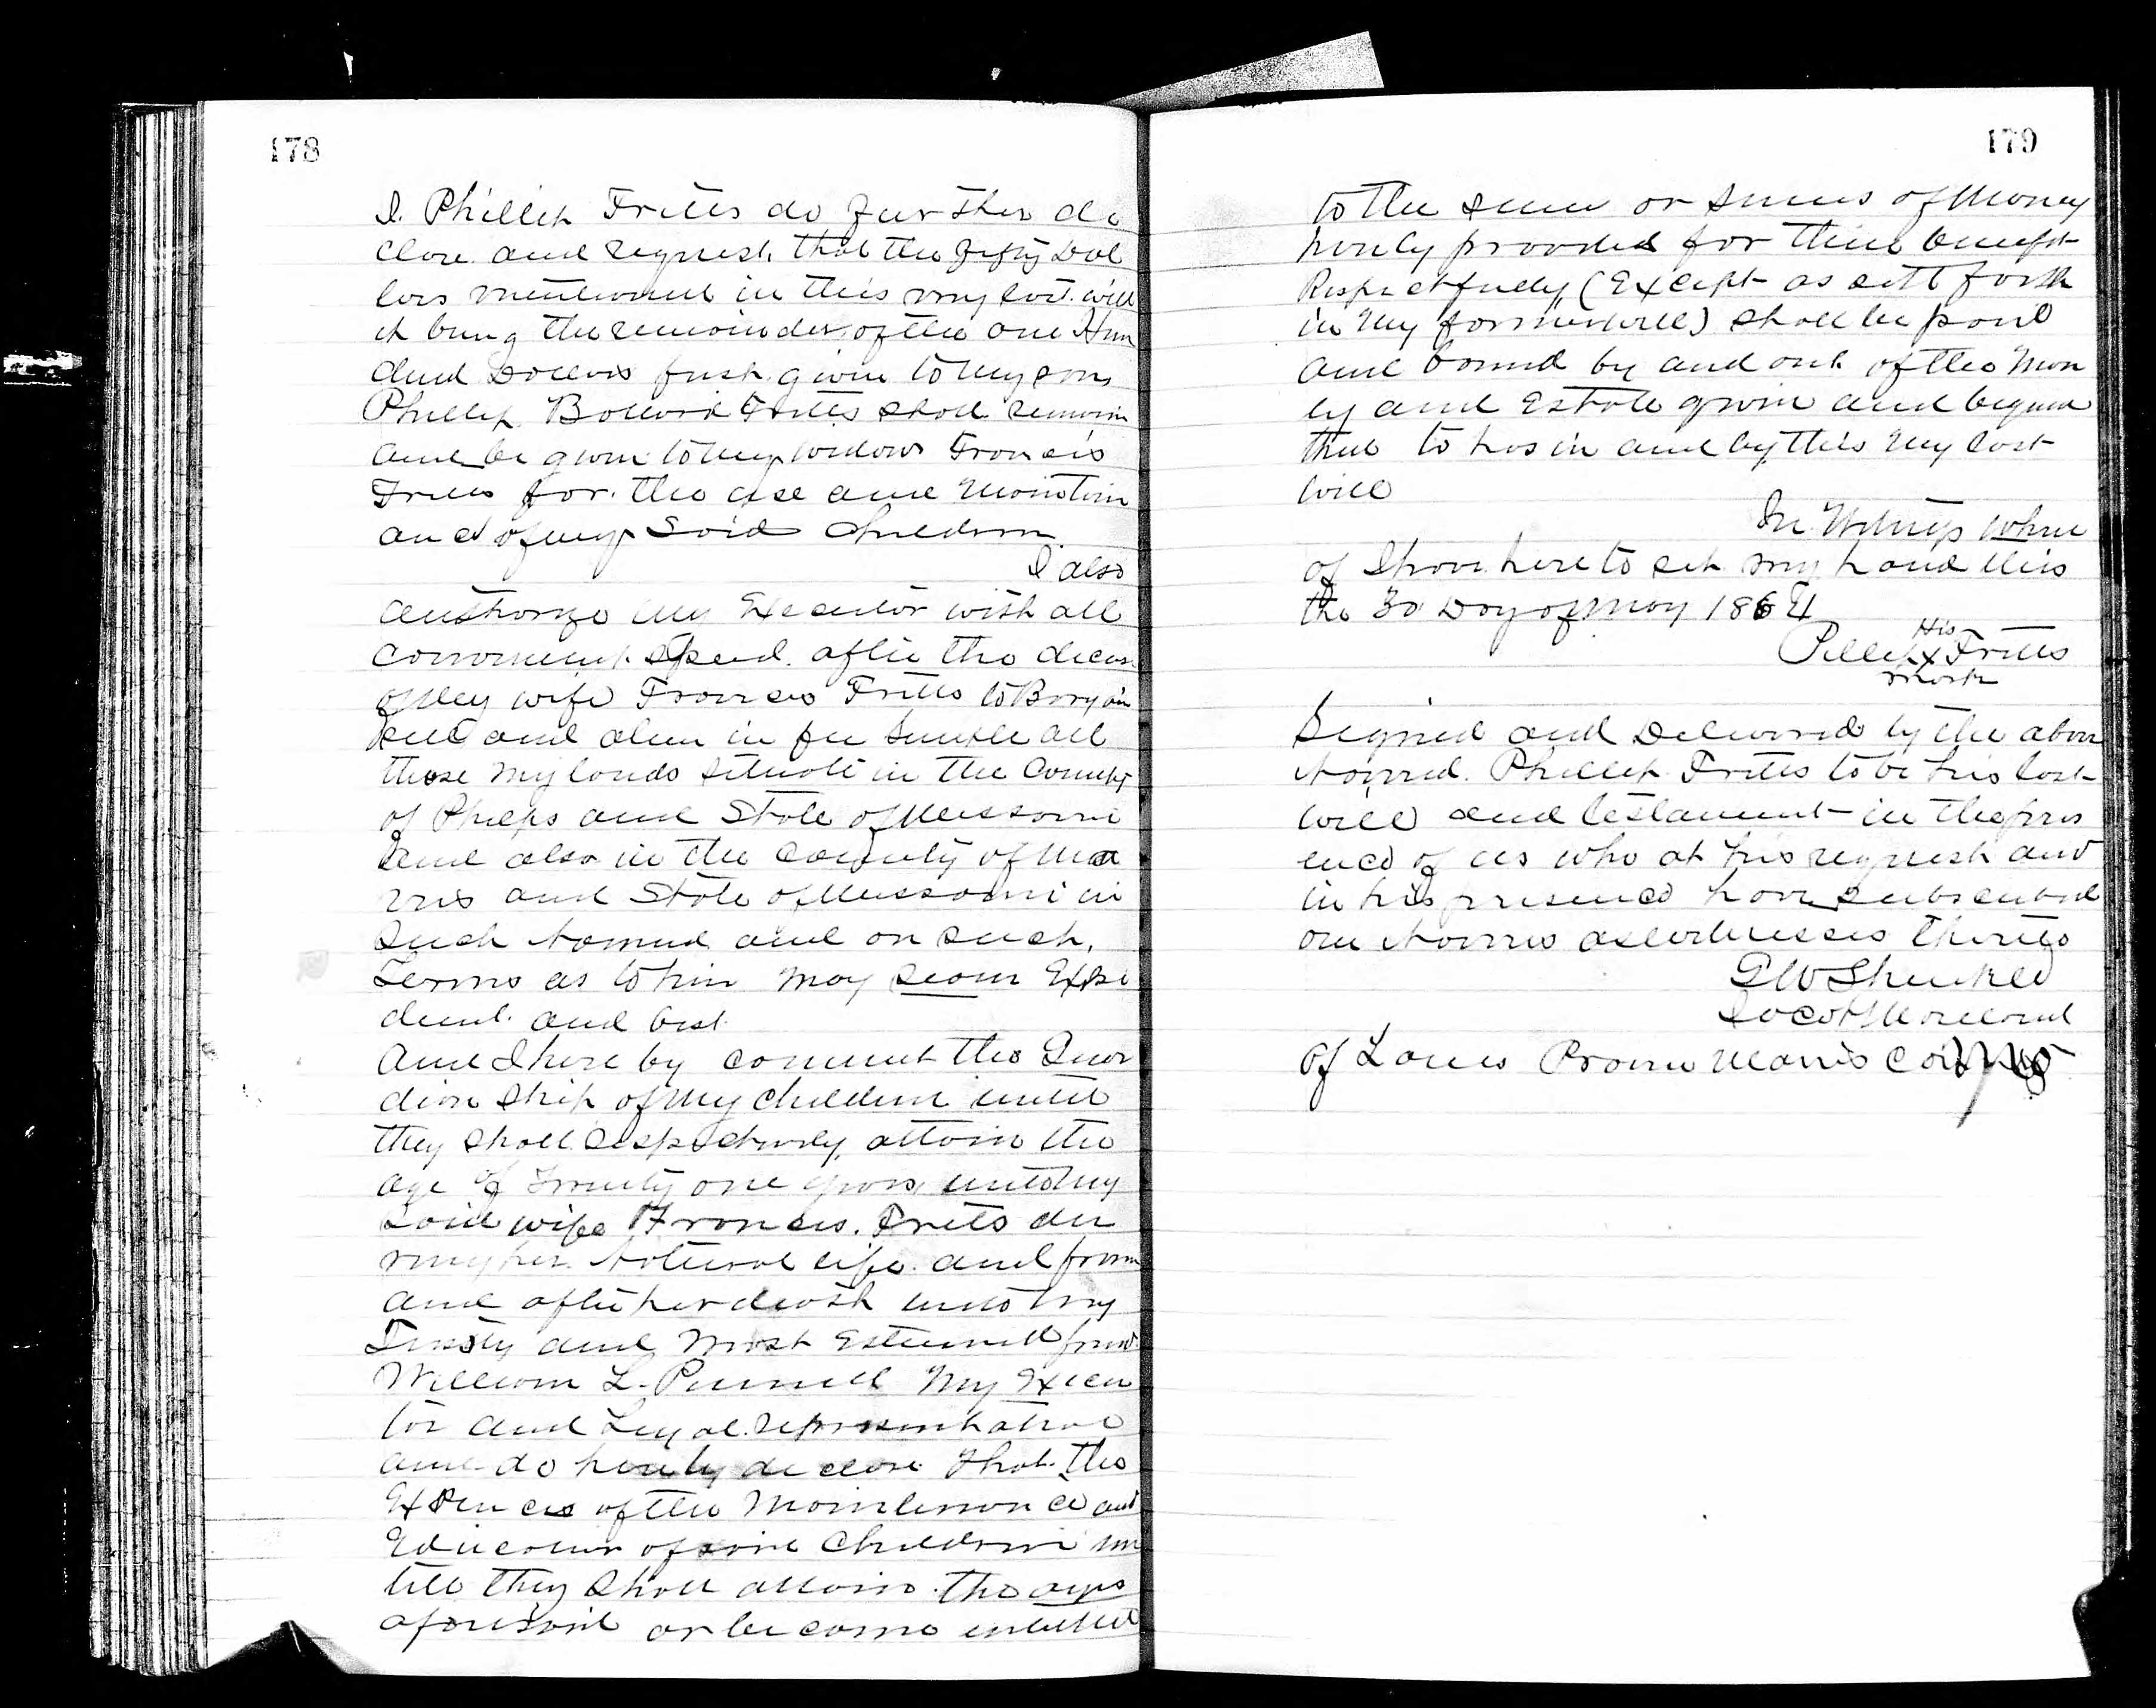 178
I. Phillip Fritts do further de
clare and request, that the fifty Dol
lars mentioned in this my last will
it being the remainder of the one Hun
dred Dollars first given to my son
Phillip Fritts shall remain
and be given to my widow Francis
Fritts for the use and maintain
ance of my Said Children
I also
authorize my Executor with all
convenient speed after the decease
of my wife Francis Fritts to Bargain
sell and alien in fee simple all
those my lands situate in the County
of Phelps and State of Missouri
and also in the county of Ma
ries and State of Missouri in
such manner and on such,
Terms as to him may seam Expe
dient and best
And I here by commit the Guar
dian Ship of my children until
they shall respectively attain the
age of Twenty one years unto my
said wife Francis. Fritts du
ring her natural life and from
and after her death unto my
Trusty and most Esteemed friend
William L. My Execu
tor and Legal representative
and do hereby declare That the
Expences of the Maintenance and
Education of said Children un
till they shall attain the ages
aforesaid or become entitled
179
to the sum or sums of money
hereby provided for their benefit
Respectfully (Except as sett forth
in my former will) shall be paid
and bound by and out of the mon
ey and Estate given and bequea
thed to her in and by this my last
will
In Witness where
of I have here to set my hand this
the 30 Day of May 1864
His
Pillip X Fritts
mark
Signed and Delivered by the above
Named. Phillip Fritts to be his last
will and testament in the pres
ence of us who at his request and
in his presence have subscribed
our Names as witnesses thereto
G W Shinkle
Of Lanes Prarie Maries Co Mo